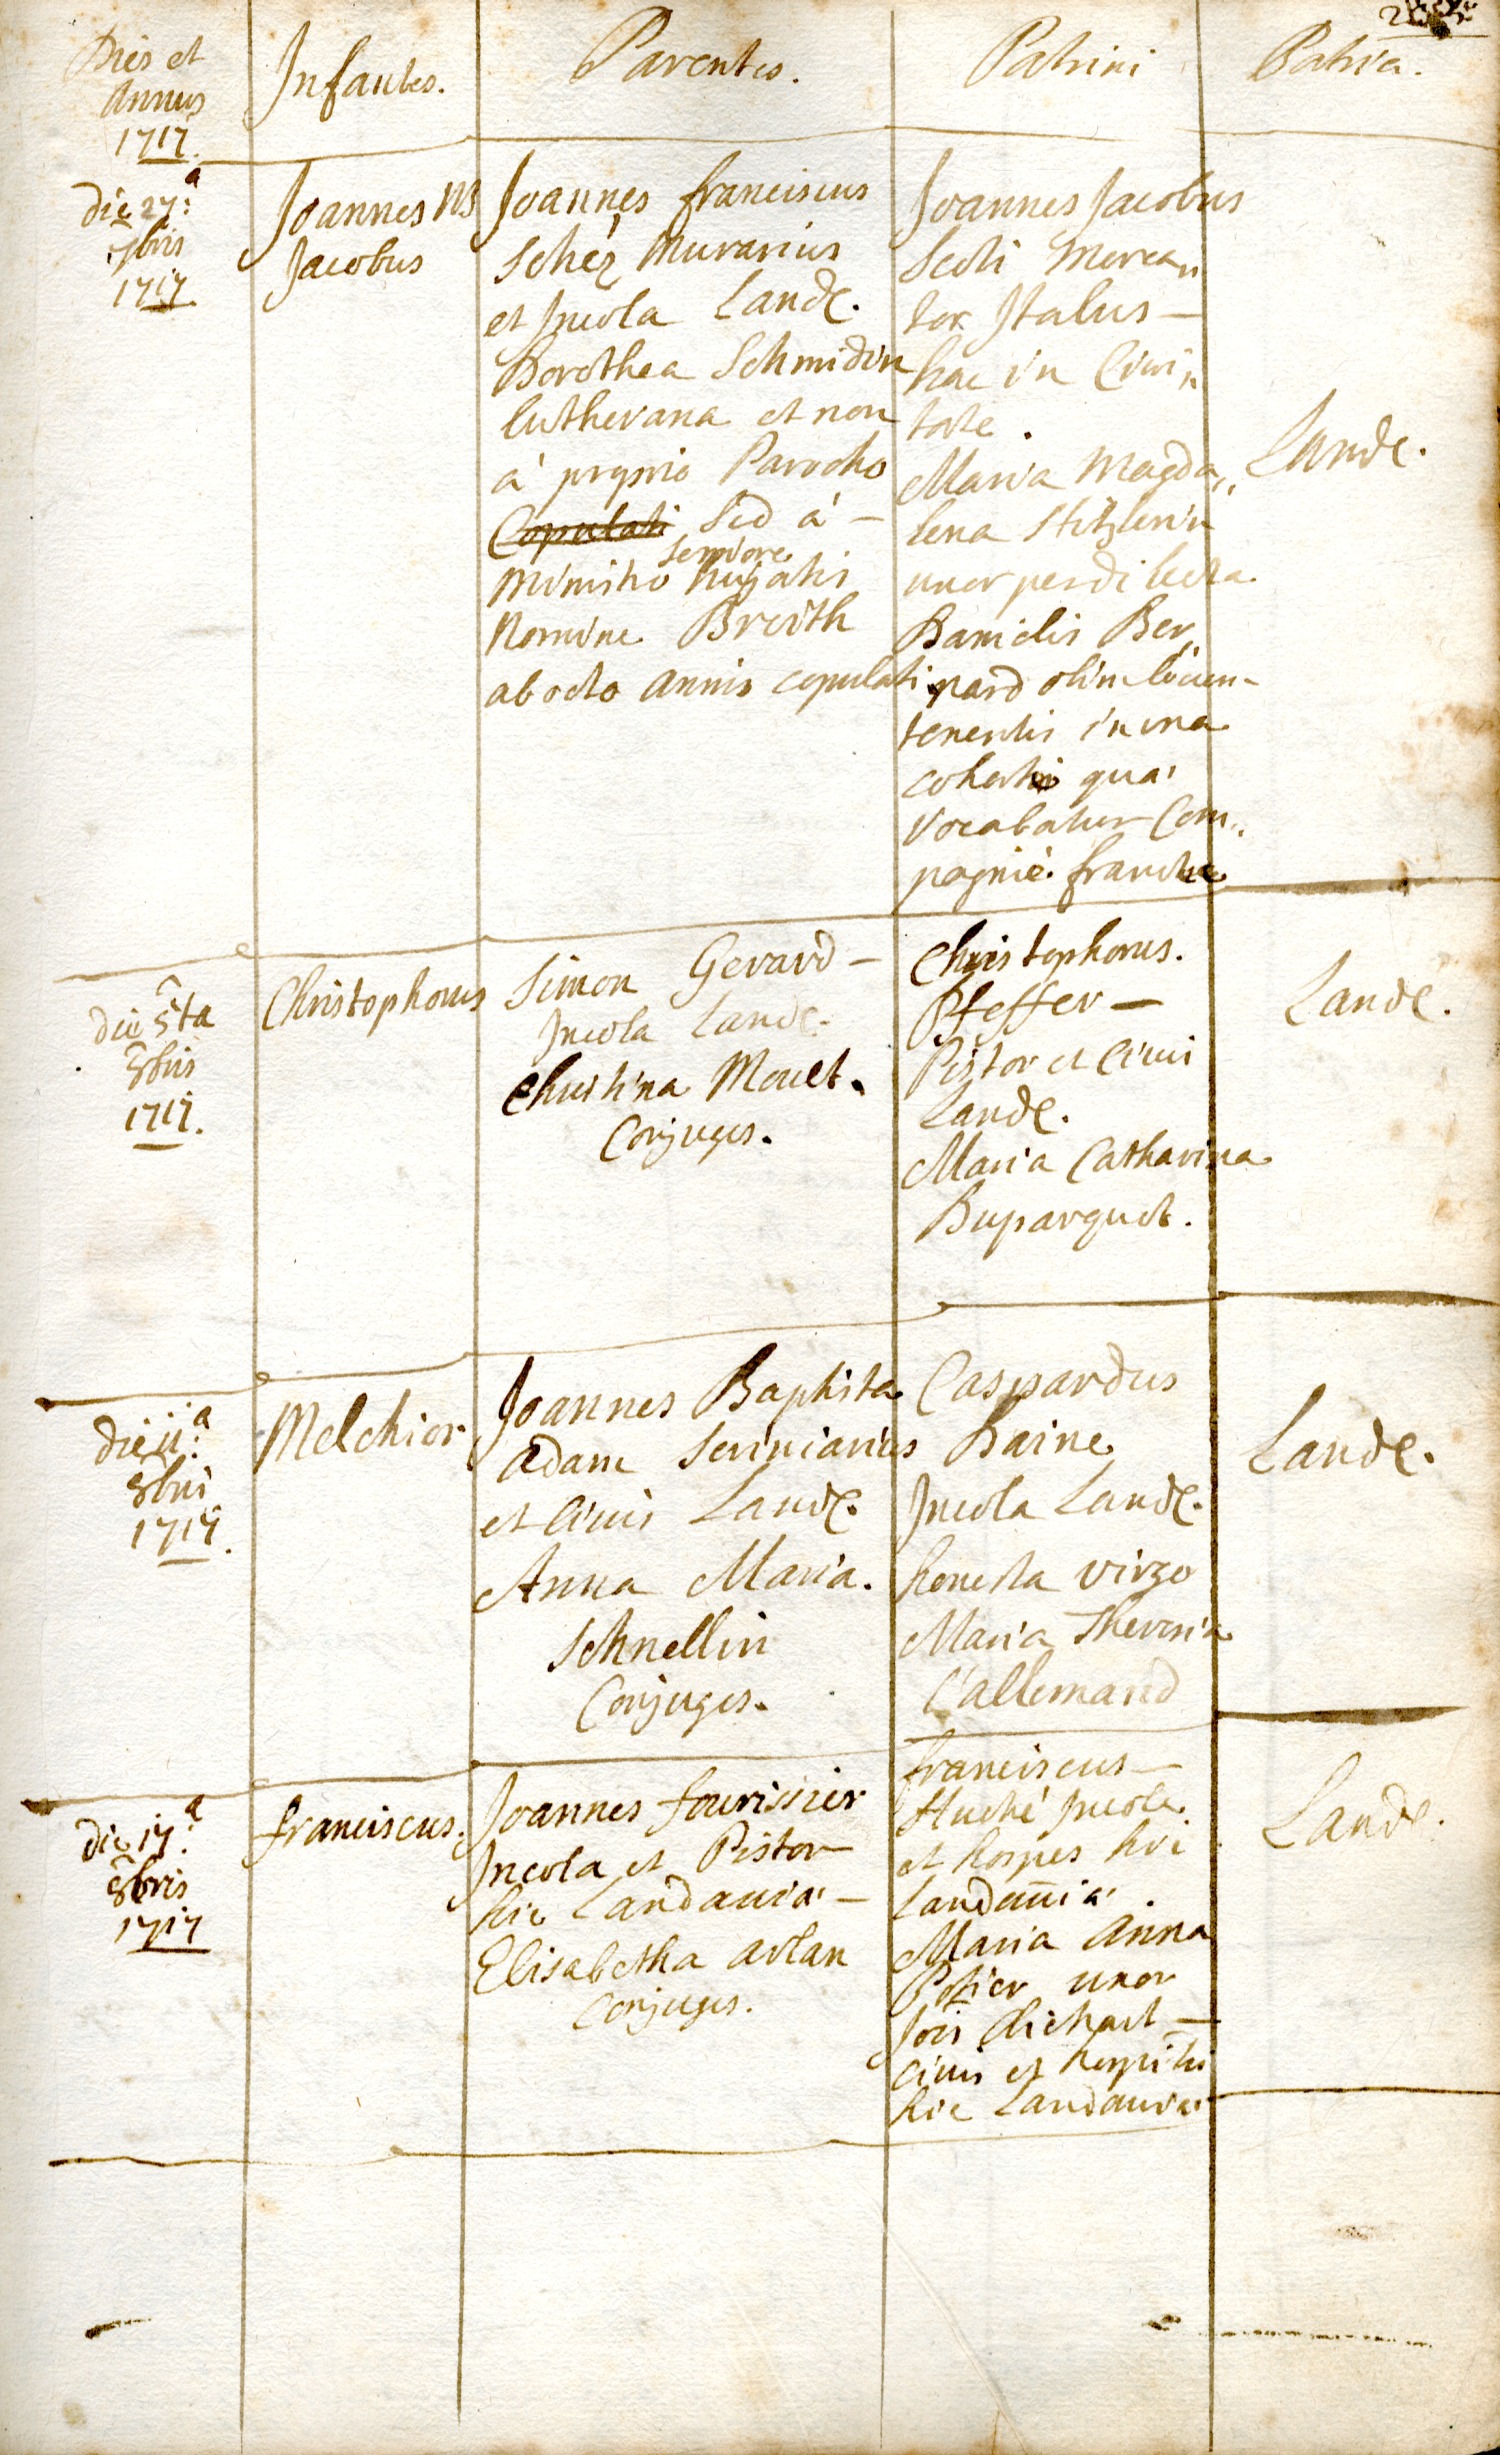 Dies et
Annus
1717.
Infantes.
Parentes.
Patrini
Patria.
die 27:a
7bris
1717.
Joannes NB
Jacobus
Joannes franciscus
Schéz Murarius
et Incola Land.
Dorothea Schmidin
lutherana et non
á proprio Parocho
Copulati Sed á —
seniore
Ministro hujatis
Nomine Breith
ab octo annis copulati
Joannes Jacobus
Scoti Merca„
tor Italus —
hac in Civi„
tate.
Maria Magda„
lena Stitzlerin
uxor perdilecta
Danielis Ber„
nard olim locum-
tenentis in una
cohorti qua
vocabatur Com„
pagnie franche
Land.
die 5ta
8bris
1717.
Christophorus
Simon Gerard —
Incola Land.
Christina Mouet.
Conjuges.
Christophorus.
Pfeffer —
Pistor et Civis
Land.
Maria Catharina
Duparquet.
Land.
die 11:a
8bris
1717.
Melchior
Joannes Baptista
Adam Scriniarius
et Civis Land.
Anna Maria.
Schnellin
Conjuges.
Caspardus
Daine
Incola Land.
honesta virgo
Maria Theresia
l'allemand
Land.
die 17:a
8bris
1717
franciscus.
Joannes fourissier
Incola et Pistor
hic Landavia —
Elisabetha arlan
Conjuges.
franciscus —
Huché Incola
et hospes hic
Landavia.
Maria Anna
Potier uxor
Jois Richart —
Civis et hospitis
hic Landavia
Land.